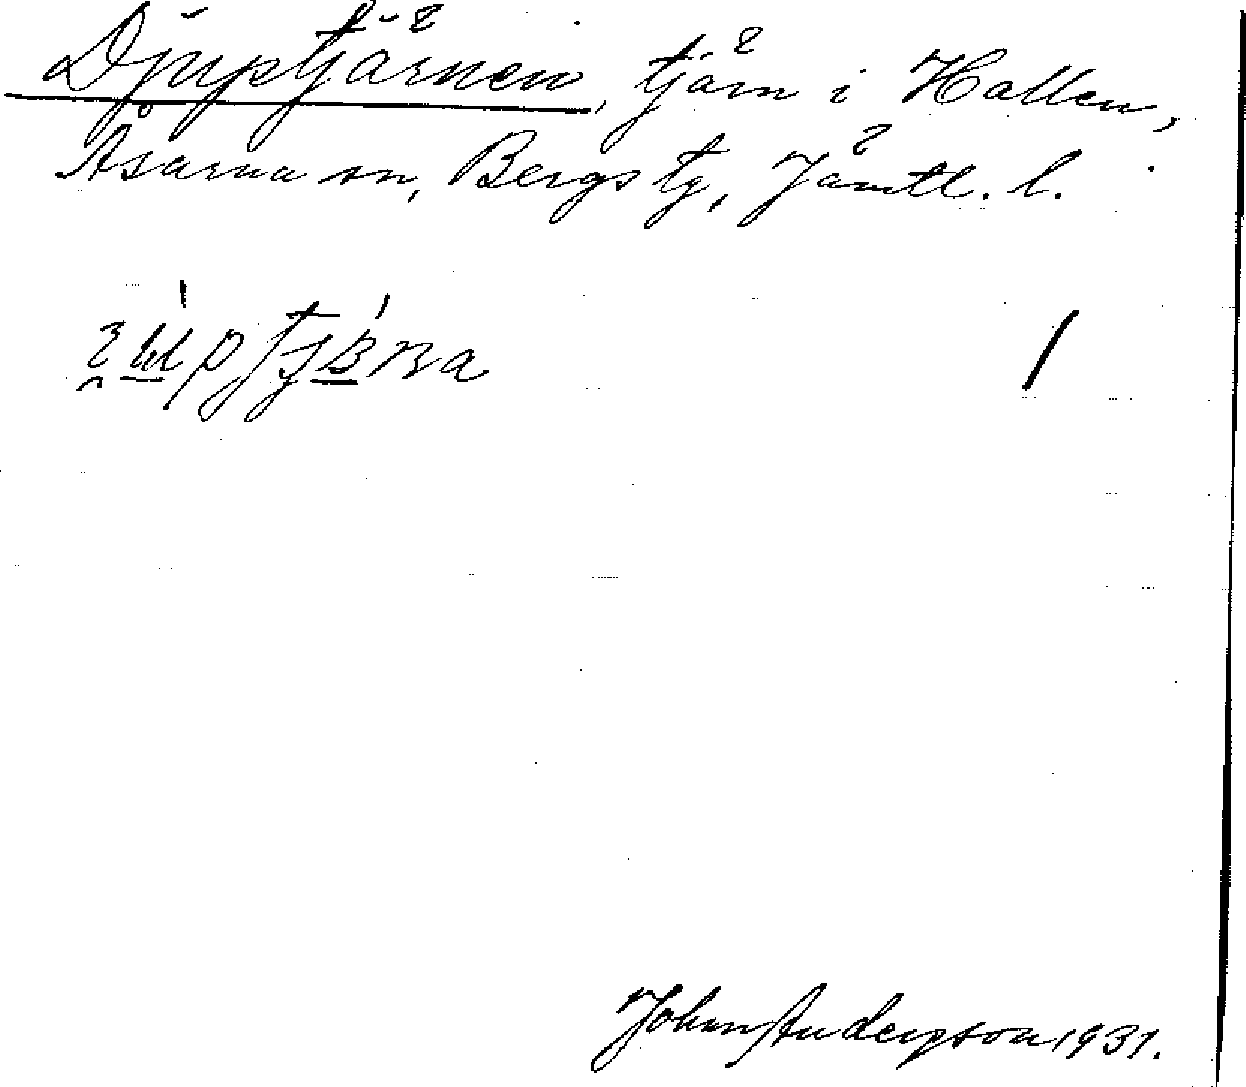 Djuptjärnen, tjärn i Hallen,
Åsarna sn, Bergs tg, Jämtl. l.
/
John Anderson 1931.